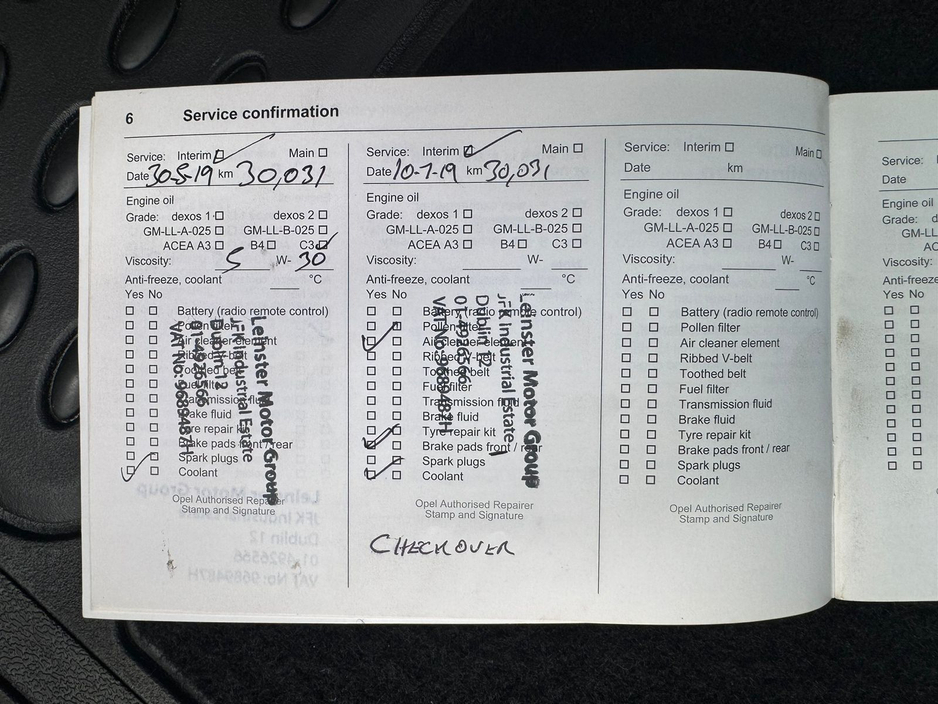 6 Service confirmation
Service: Interim Main
Date 30-5-19 km 30,031
Engine oil
Grade: dexos 1 dexos 2
GM-LL-A-025 GM-LL-B-025
ACEA A3 B4 C3
Viscosity: 5 W- 30
Anti-freeze, coolant °C
Yes No
Battery (radio remote control)
Pollen filter
Air cleaner element
Ribbed V-belt
Toothed belt
Fuel filter
Transmission fluid
Brake fluid
Tyre repair kit
Brake pads front / rear
Spark plugs
Coolant
Leinster Motor Group
JFK Industrial Estate
Dublin 12
01-4926566
VAT No: 9689487H
Opel Authorised Repairer
Stamp and Signature
Service: Interim Main
Date 10-7-19 km 30,031
Engine oil
Grade: dexos 1 dexos 2
GM-LL-A-025 GM-LL-B-025
ACEA A3 B4 C3
Viscosity: W-
Anti-freeze, coolant °C
Yes No
Battery (radio remote control)
Pollen filter
Air cleaner element
Ribbed V-belt
Toothed belt
Fuel filter
Transmission fluid
Brake fluid
Tyre repair kit
Brake pads front / rear
Spark plugs
Coolant
Leinster Motor Group
JFK Industrial Estate
Dublin 12
01-4926566
VAT No: 9689487H
Opel Authorised Repairer
Stamp and Signature
CHECKOVER
Service: Interim Main
Date km
Engine oil
Grade: dexos 1 dexos 2
GM-LL-A-025 GM-LL-B-025
ACEA A3 B4 C3
Viscosity: W-
Anti-freeze, coolant °C
Yes No
Battery (radio remote control)
Pollen filter
Air cleaner element
Ribbed V-belt
Toothed belt
Fuel filter
Transmission fluid
Brake fluid
Tyre repair kit
Brake pads front / rear
Spark plugs
Coolant
Opel Authorised Repairer
Stamp and Signature
Service:
Date
Engine oil
Grade:
GM-LL
Viscosity:
Anti-freeze
Yes No